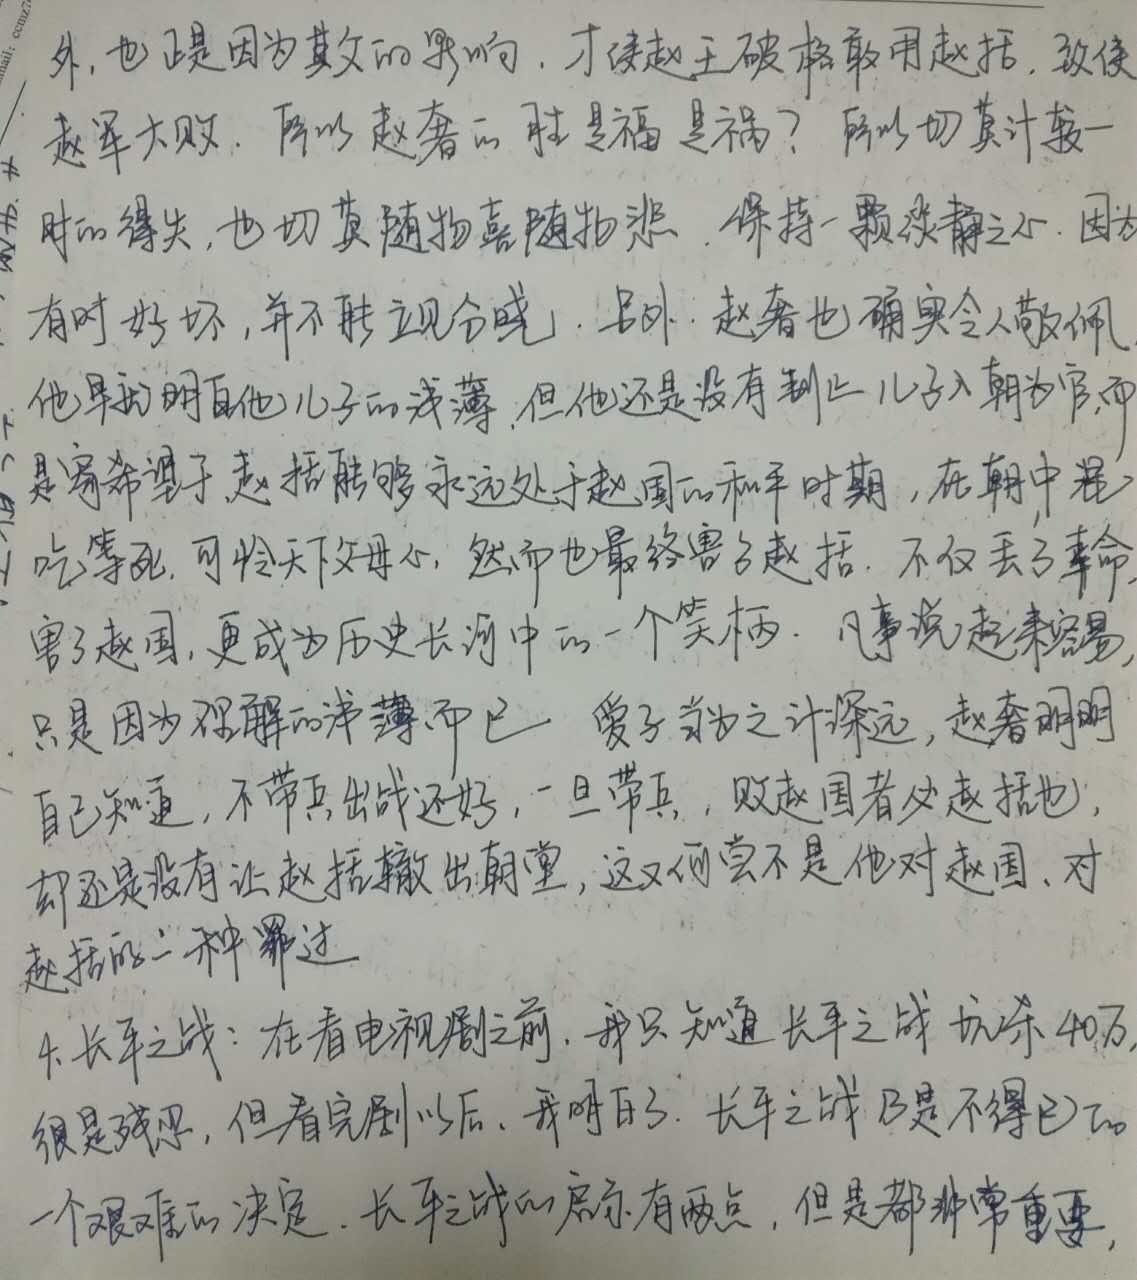 外,也正是因为其父的影响,才使赵王破格敢用赵括,致使
赵军大败.所以赵奢的胜是福是祸?所以切莫计较一
时的得失,也切莫随物喜随物悲.保持一颗淡静之心.因为
有时好坏,并不能立见分晓.另外.赵奢也确实令人敬佩,
他早就明白他儿子的浅薄,但他还是没有制止儿子入朝为官,而
是寄希望于赵括能够永远处于赵国的和平时期,在朝中混
吃等死,可怜天下父母心,然而也最终害了赵括.不仅丢了革命,
害了赵国,更成为历史长河中的一个笑柄.凡事说起来容易,
只是因为理解的浅薄而已 爱子当为之计深远,赵奢明明
自己知道,不带兵出战还好,一旦带兵,败赵国者必赵括也,
却还是没有让赵括辙出朝堂,这又何尝不是他对赵国、对
赵括的一种罪过
4.长平之战:在看电视剧之前,我只知道长平之战坑杀40万,
很是残忍,但看完剧以后,我明白了.长平之战乃是不得已的
一个艰难的决定.长平之战的启示有两点,但是都非常重要,
ccmz